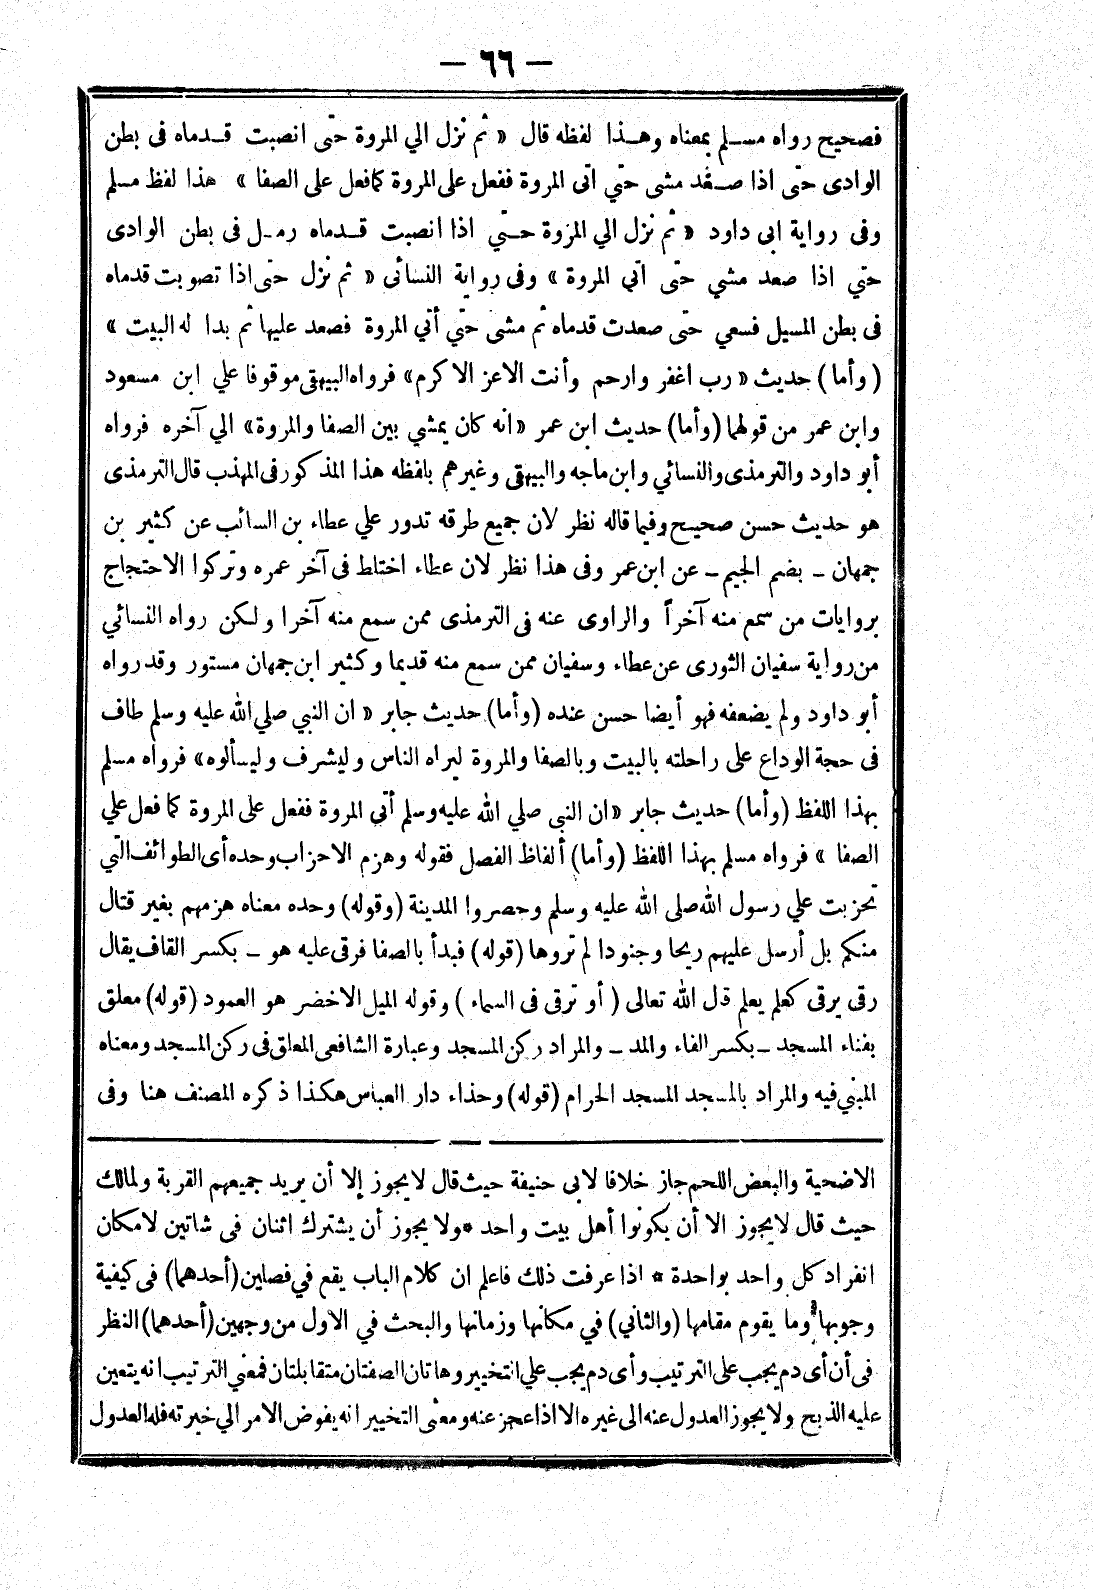 — ٦٦ —
فصحيح رواه مسلم بمعناه وهذا لفظه قال « ثم نزل الي المروة حتى انصبت قدماه فى بطن
الوادى حتى اذا صعد مشى حتي اتى المروة ففعل على المروة كما فعل على الصفا » هذا لفظ مسلم
وفى رواية ابى داود « ثم نزل الي المروة حتي اذا انصبت قدماه رمل فى بطن الوادى
حتي اذا صعد مشي حتى اتي المروة » وفى رواية النسائى « ثم نزل حتى اذا تصوبت قدماه
فى بطن المسيل فسعي حتى صعدت قدماه ثم مشى حتي أتي المروة فصعد عليها ثم بدا له البيت »
( وأما ) حديث « رب اغفر وارحم وأنت الاعز الاكرم» فرواه البيهقى موقوفا علي ابن مسعود
وابن عمر من قولهما (وأما) حديث ابن عمر «انه كان يمشي بين الصفا والمروة» الي آخره فرواه
أبو داود والترمذى والنسائي وابن ماجه والبيهقى وغيرهم بلفظه هذا المذكور فى المهذب قال الترمذى
هو حديث حسن صحيح وفيما قاله نظر لان جميع طرقه تدور علي عطاء بن السائب عن كثير بن
جمهان ـ بضم الجيم ـ عن ابن عمر وفى هذا نظر لان عطاء اختلط فى آخر عمره وتركوا الاحتجاج
بروايات من سمع منه آخراً والراوى عنه فى الترمذى ممن سمع منه آخرا ولكن رواه النسائي
من رواية سفيان الثورى عن عطاء وسفيان ممن سمع منه قديما وكثير ابن جمهان مستور وقد رواه
أبو داود ولم يضعفه فهو أيضا حسن عنده (وأما) حديث جابر « ان النبي صلي الله عليه وسلم طاف
فى حجة الوداع على راحلته بالبيت وبالصفا والمروة ليراه الناس وليشرف وليسألوه» فرواه مسلم
بهذا اللفظ (وأما) حديث جابر «ان النبى صلي الله عليه وسلم أتي المروة ففعل على المروة كما فعل علي
الصفا » فرواه مسلم بهذا اللفظ (وأما) ألفاظ الفصل فقوله وهزم الاحزاب وحده أى الطوائف التي
تحزبت علي رسول الله صلى الله عليه وسلم وحصروا المدينة (وقوله) وحده معناه هزمهم بغير قتال
منكم بل أرسل عليهم ريحا وجنودا لم تروها (قوله) فبدأ بالصفا فرقى عليه هو ـ بكسر القاف يقال
رقى يرقى كعلم يعلم قال الله تعالى ( أو ترقى فى السماء ) وقوله الميل الاخضر هو العمود (قوله) معلق
بفناء المسجد ـ بكسر الفاء والمد ـ والمراد ركن المسجد وعبارة الشافعى المعلق فى ركن المسجد ومعناه
المبني فيه والمراد بالمسجد المسجد الحرام (قوله) وحذاء دار العباس هكذا ذكره المصنف هنا وفى
الاضحية والبعض اللحم جاز خلافا لابى حنيفة حيث قال لا يجوز إلا أن يريد جميعهم القربة ولمالك
حيث قال لا يجوز الا أن يكونوا أهل بيت واحد * ولا يجوز أن يشترك اثنان فى شاتين لامكان
انفراد كل واحد بواحدة * اذا عرفت ذلك فاعلم ان كلام الباب يقع في فصلين (أحدهما) فى كيفية
وجوبها وما يقوم مقامها (والثاني) في مكانها وزمانها والبحث في الاول من وجهين (أحدهما) النظر
فى أن أى دم يجب على الترتيب وأى دم يجب علي التخيير وهاتان الصفتان متقابلتان فمعني الترتيب انه يتعين
عليه الذبح ولا يجوز العدول عنه الى غيره الا اذا عجز عنه ومعنى التخيير انه يفوض الامر الي خيرته فله العدول